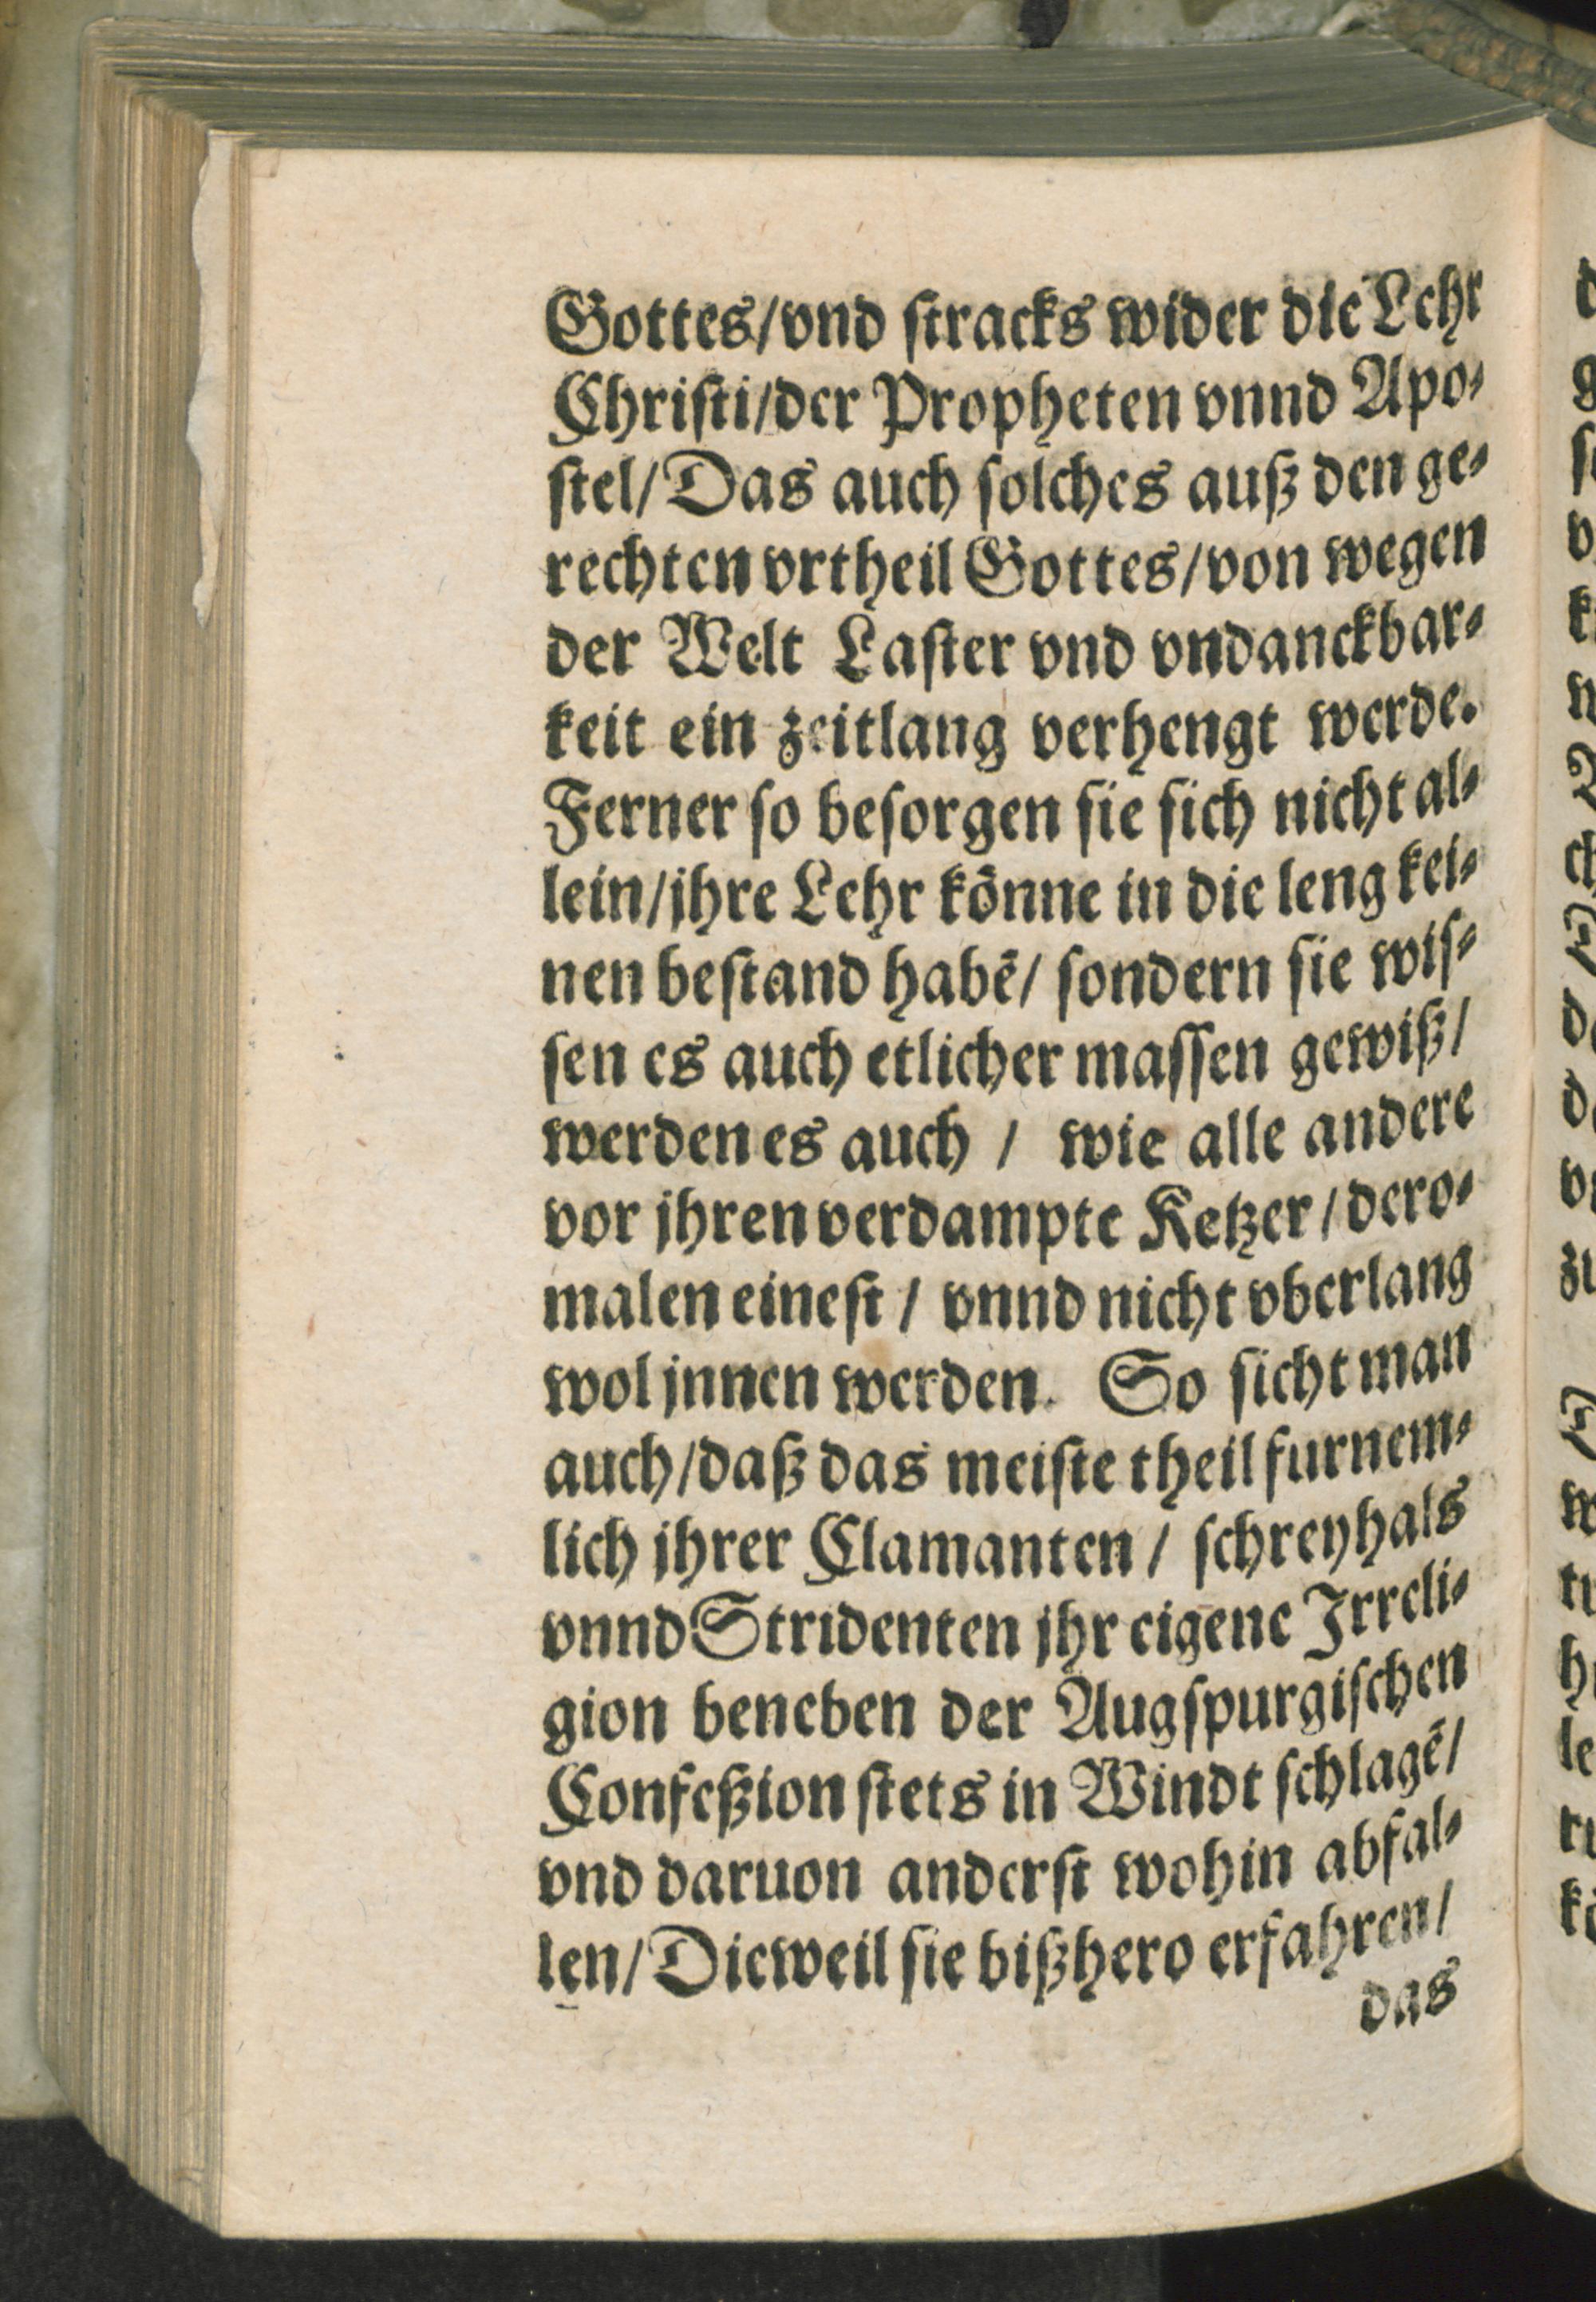 Gottes/vnd stracks wider die Lehr
Christi/der Propheten vnnd Apo⸗
stel/Das auch solches auß den ge⸗
rechten vrtheil Gottes/von wegen
der Welt Laster vnd vndanckbar⸗
keit ein zeitlang verhengt werde.
Ferner so besorgen sie sich nicht al⸗
lein/jhre Lehr könne in die leng kei⸗
nen bestand habē/ sondern sie wis⸗
sen es auch etlicher massen gewiß/
werden es auch / wie alle andere
vor jhren verdampte Ketzer/dero⸗
malen einest / vnnd nicht vberlang
wol jnnen werden. So sicht man
auch/daß das meiste theil furnem⸗
lich jhrer Clamanten / schreyhals
vnnd Stridenten jhr eigene Irreli⸗
gion beneben der Augspurgischen
Confeßion stets in Windt schlagē/
vnd daruon anderst wohin abfal⸗
len/Dieweil sie bißhero erfahren/
das